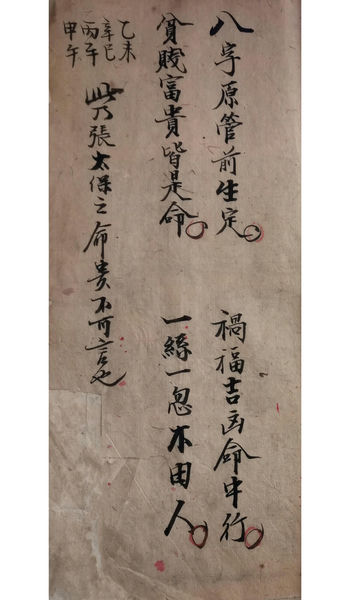 八字原管前生定 禍福吉凶命中行
貧賤富貴皆是命 一絲一息不由人
乙未
辛巳
丙午
甲午
此乃張太保之命貴不可言也